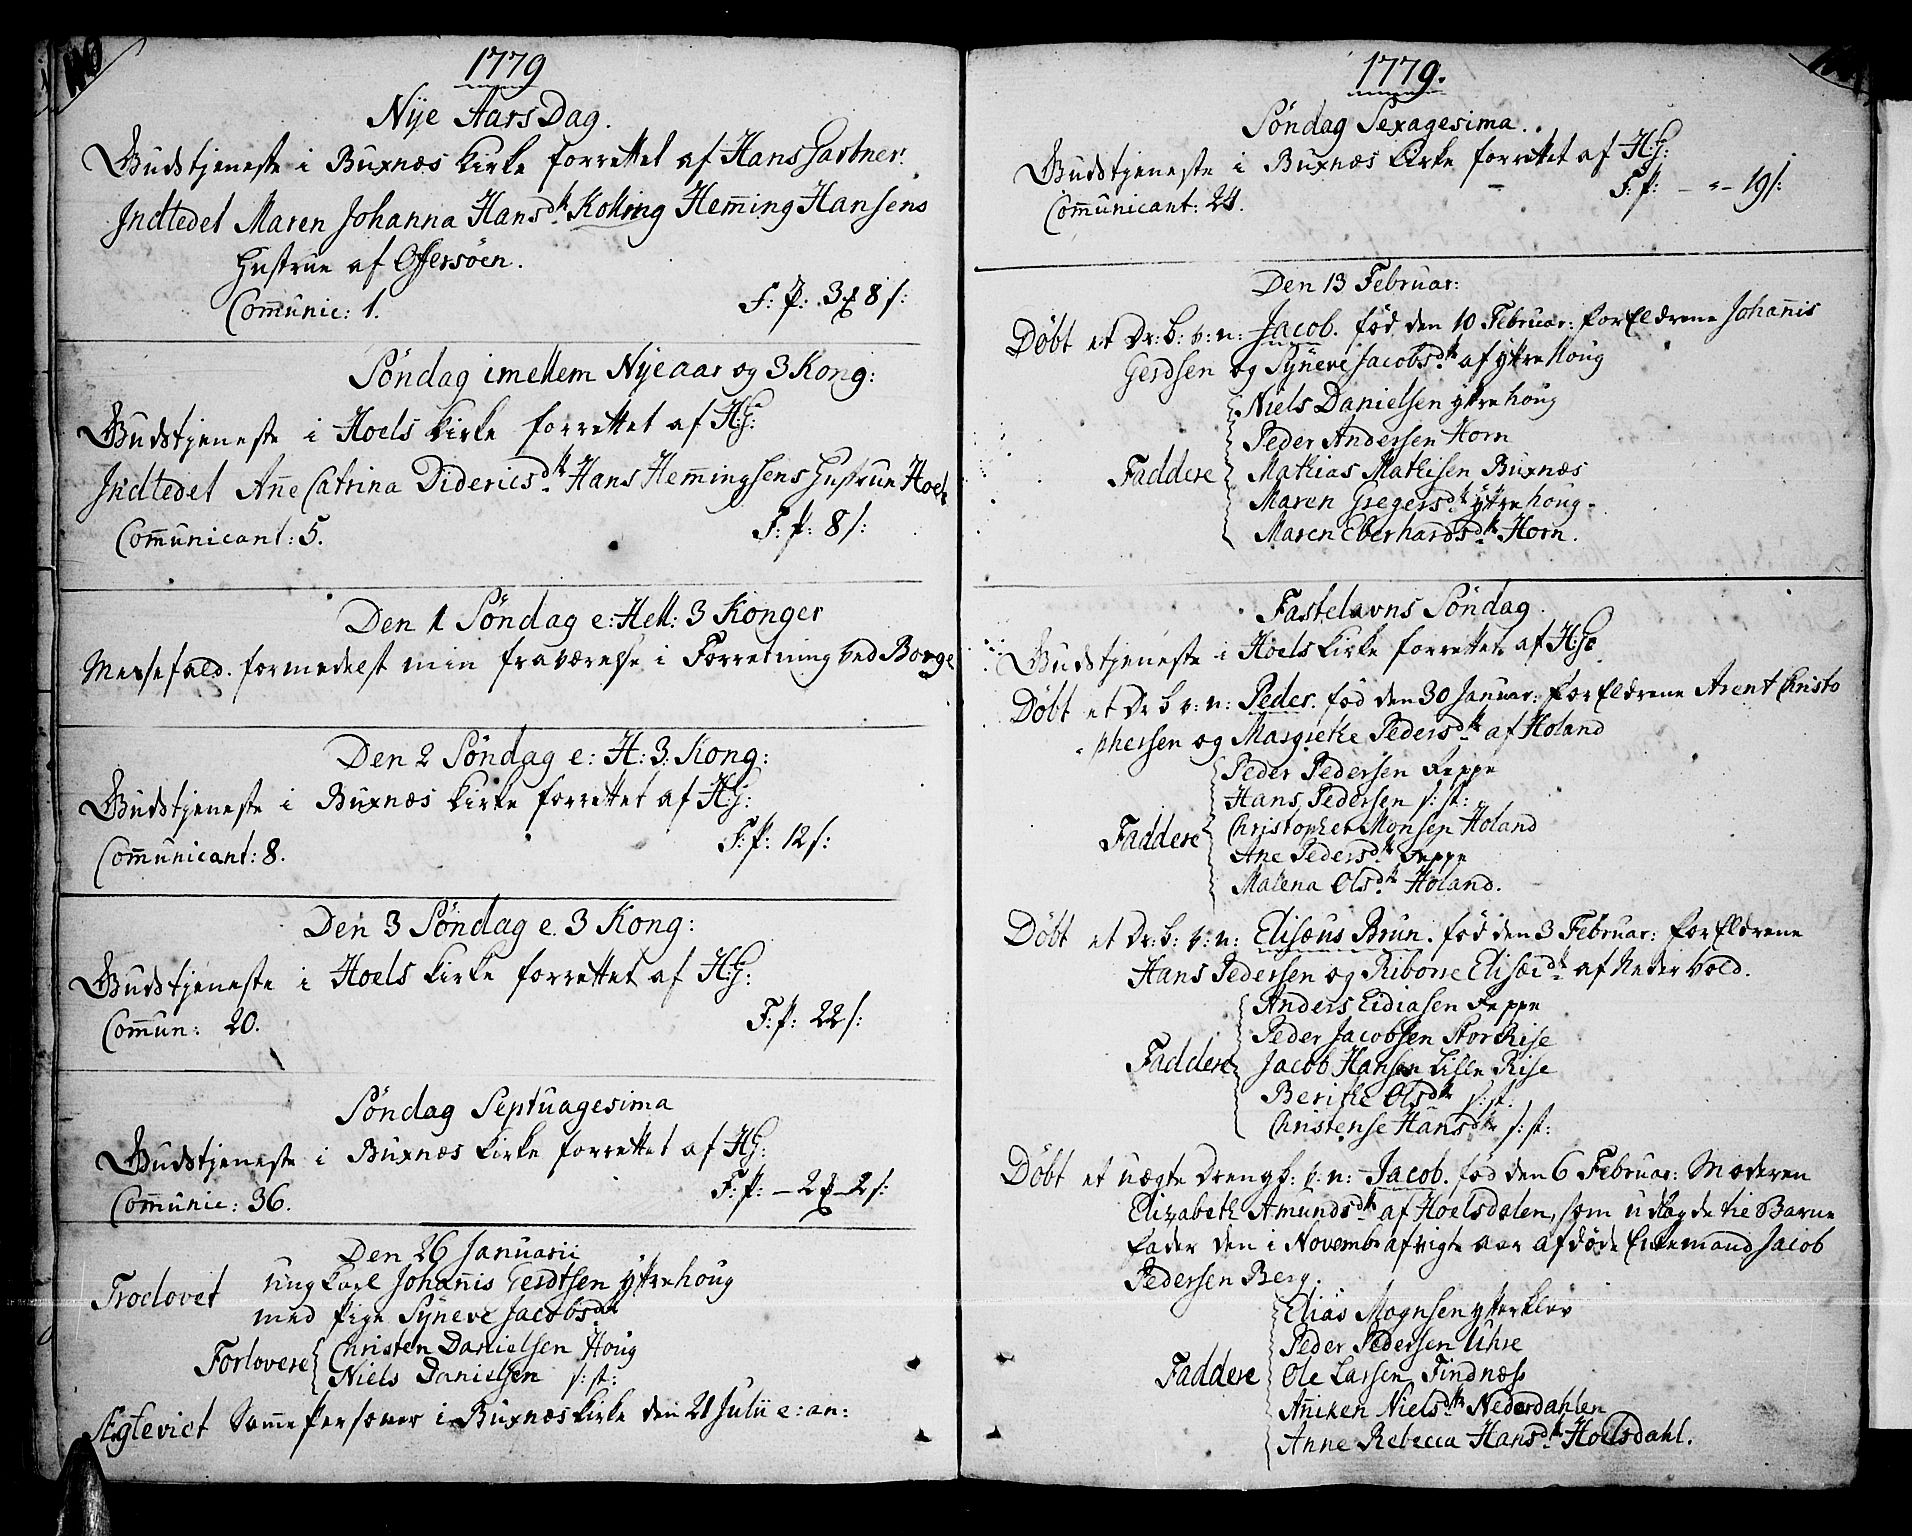 1779
Nÿe Aars Dag.
Gudstjeneste i Buxnæs Kirke forrettet af Hans Gartner.
Indledet Maren Johanna Hansd: Kolling Hem̄ing Hansens
Hustrue af Offersøen.
Com̄unic: 1.
F: P: 3 8 s:
Søndag imellem Nÿeaar og 3 Kong:
Gudstjeneste i Hoels Kirke forrettet af H:G:
Indledet An̄e Catrina Didericsd: Hans Hem̄ingsens Hustrue Hoel
Com̄unicant: 5.
F: P: 8 s:
Den 1 Søndag e: Hell: 3 Konger
Messefald formedelst min fraværelse i Forretning ved Borge
Den 2 Søndag e: H: 3: Kong:
Gudstjeneste i Buxnæs Kirke forrettet af H:G:
Com̄unicant: 8.
F: P: 12 s:
Den 3 Søndag e. 3 Kong:
Gudstjeneste i Hoels Kirke forrettet af H:G:
Com̄un: 20.
F: P: 22 s:
Søndag Septuagesima
Gudstjeneste i Buxnæs Kirke forrettet af H:G:
Com̄unic: 36.
F: P: – 2 – 2 s:
Den 26 Januarii
Troelovet Ung Karl Johan̄is Gerdtsen Ÿtrehoug
med Pige Sÿneve Jacobsd:
Forlovere Christen Danielsen Houg
Niels Danielsen s: st:
Ægteviet Sam̄e Personer i Buxnæs Kirke den 21 Julii e: an:
1779.
Søndag Sexagesima.
Gudstjeneste i Buxnæs Kirke forrettet af H:G:
Com̄unicant: 24.
F: P: – „ – 19 s:
Den 13 Februar:
Døbt et Dr: B: v: n: Jacob. fød den 10 Februar: Forældrene Johan̄is
Gerdsen og Sÿneve Jacobsd: af Ÿtre Houg
Niels Danielsen Ÿtrehoug
Peder Andersen Horn
Faddere Mathias Mathisen Buxnæs
Maren Gregersd: Ÿtrehoug
Maren Eberhardsd: Horn.
Fastelavns Søndag.
Gudstjeneste i Hoels Kirke forrettet af H:G:
Døbt et Dr B v: n: Peder. fød den 30 Januar: Forældrene Arent Christo
phersen og Margrethe Pedersd: af Holand
Peder Pedersen Reppe
Hans Pedersen s: st:
Faddere Christopher Monsen Holand
Ane Pedersd: Reppe
Malena Olsd: Holand.
Døbt et Dr: B: v: n: Elisæus Brun. fød den 3 Februar: Forældrene
Hans Pedersen og Riborre Elisæid: af Neder Vold.
Anders Eidiasen Reppe
Peder Jacobsen Stor Rise
Faddere Jacob Hansen Lille Rise
Berithe Olsd: s: st:
Christense Hansd: s: st:
Døbt et uægte Dreng B: v: n: Jacob. fød den 6 Februar: Moderen
Elizabeth Amundsd: af Hoelsdalen, som udlagde til Barne
fader den i Novemb: afvigte aar afdøde Enkemand Jacob
Pedersen Berg.
Elias Mognsen Ÿtterklev
Peder Pedersen Uhre
Faddere Ole Larsen Findnæss
An̄iken Nielsd: Nederdahlen
Anne Rebecca Hansd: Hoelsdahl.